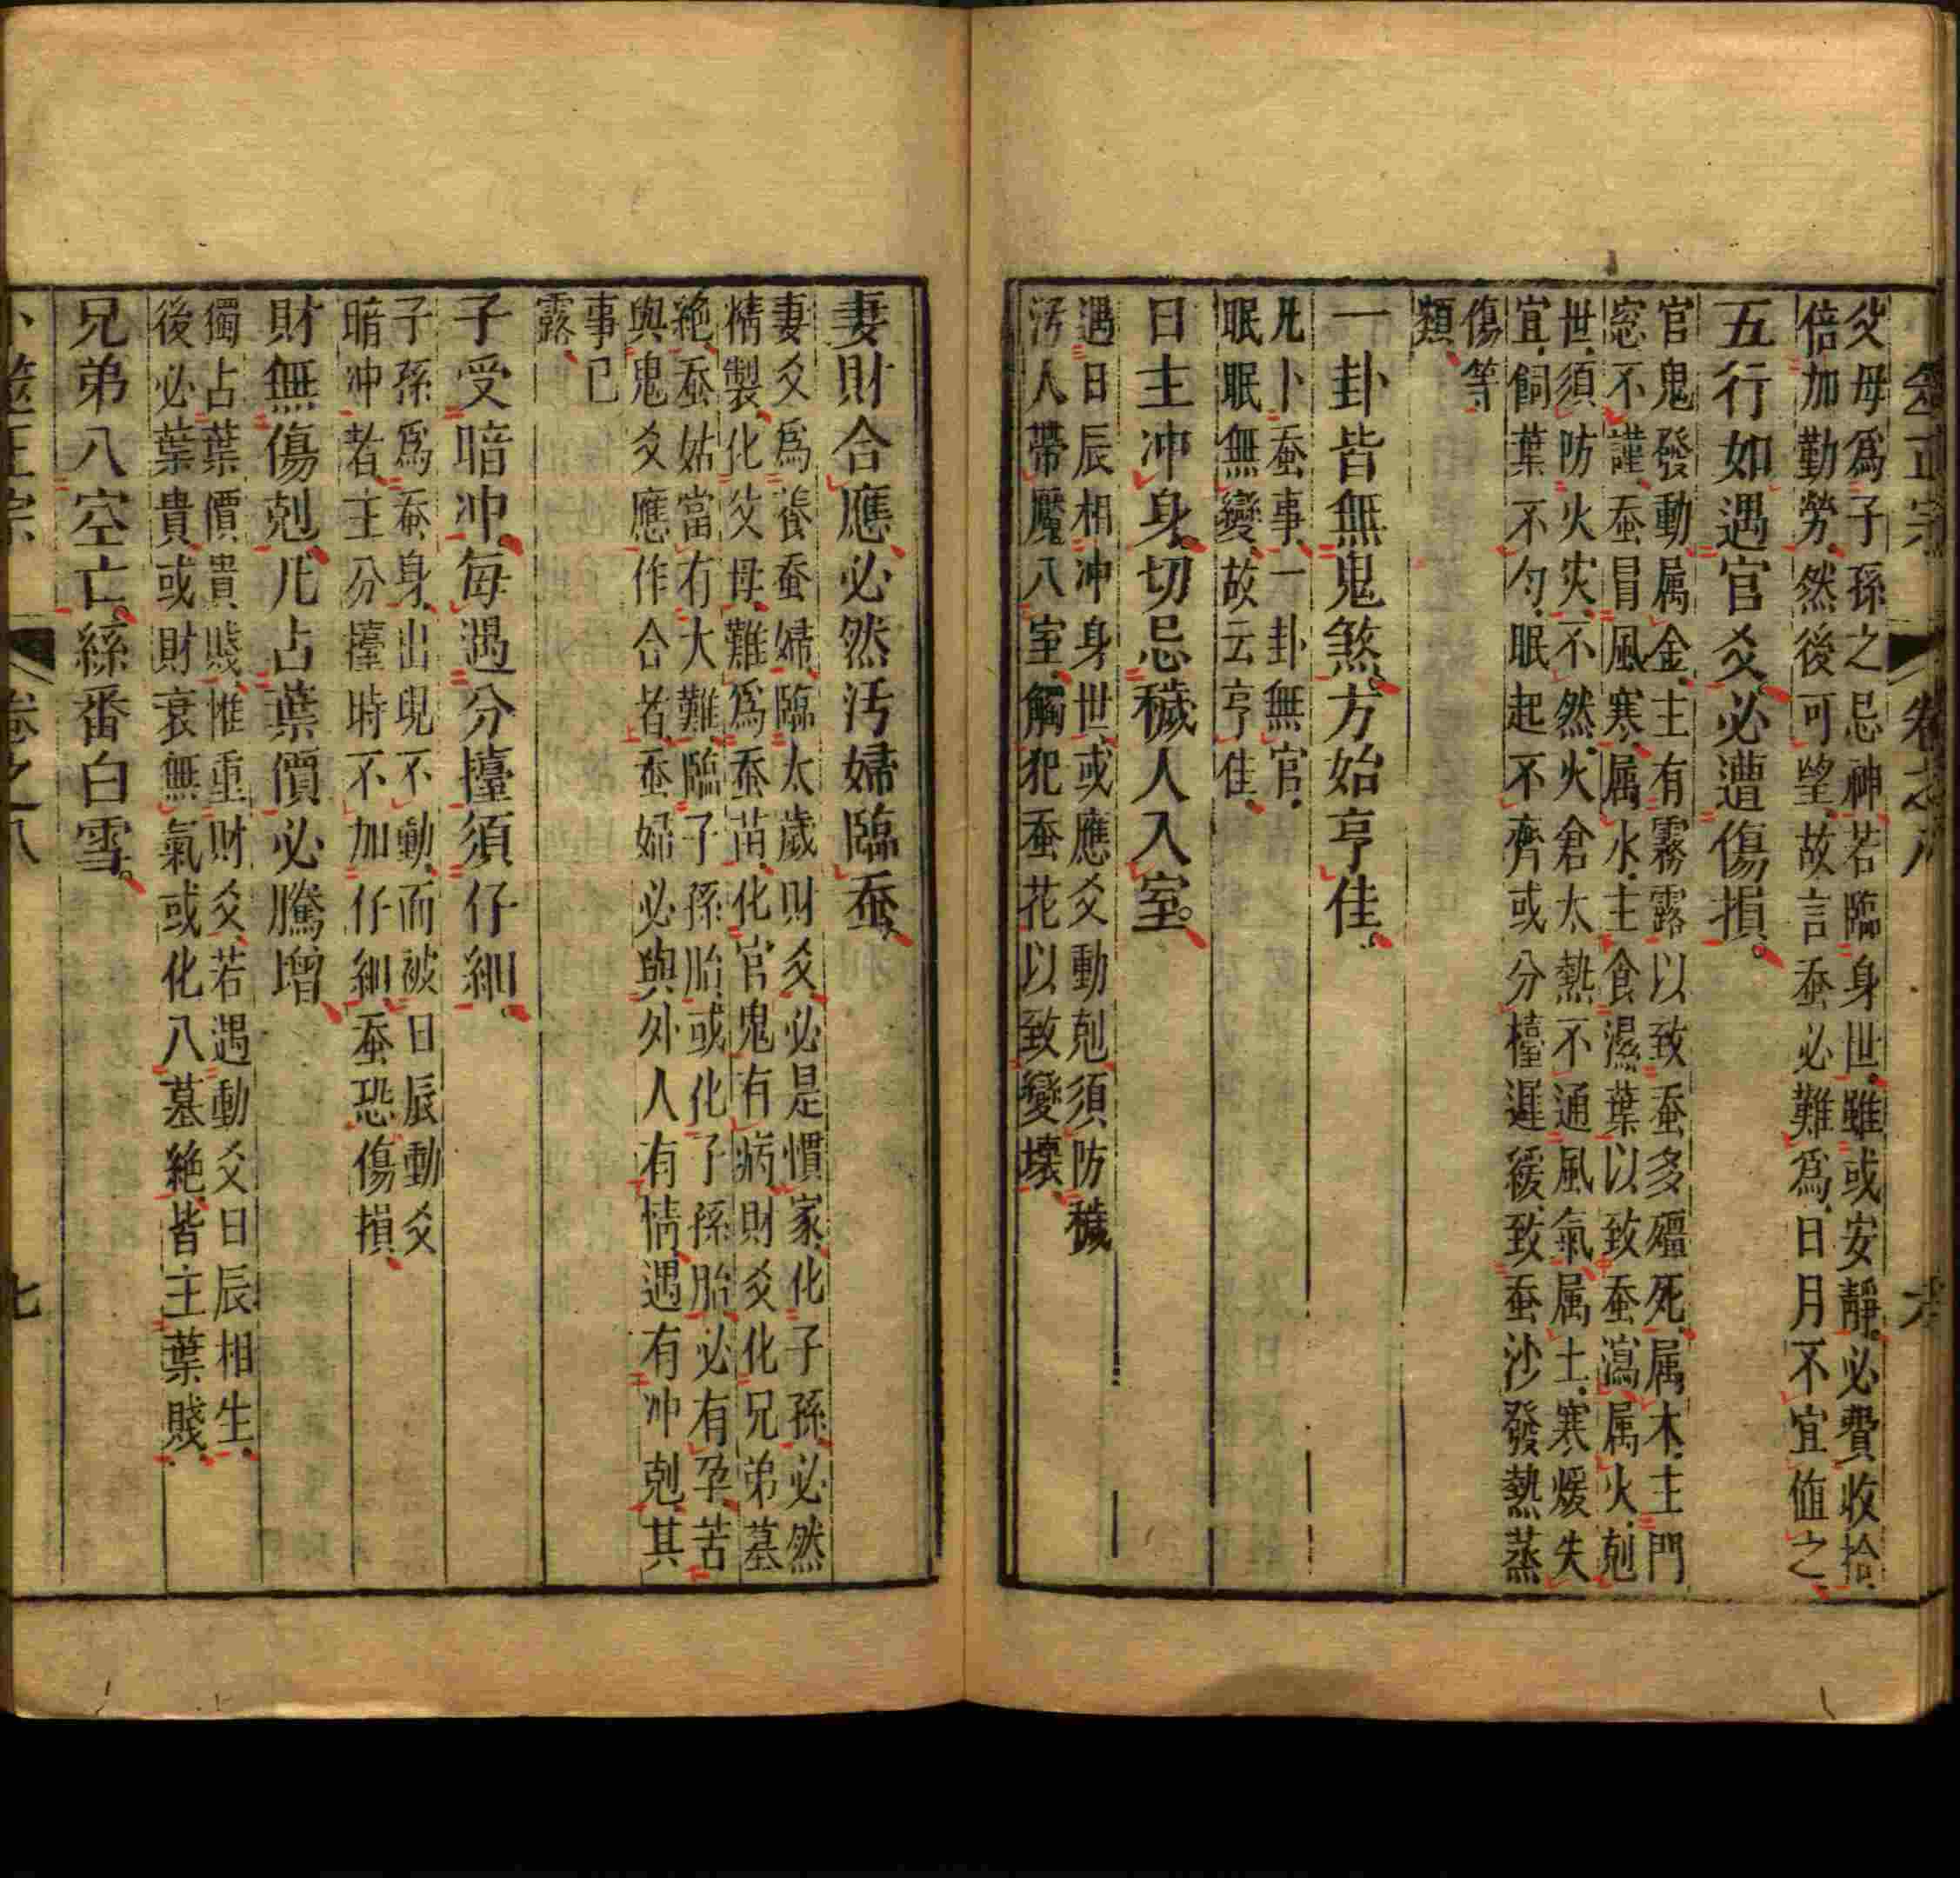 卷之八
父母爲子孫之忌神若臨身世雖或安靜必費收拾
倍加勤勞然後可望故言蚕必難爲日月不宜值之
五行如遇官爻必遭傷損
官鬼發動属金主有霧露以致蚕多殭死属木主門
窓不謹蚕冒風寒属水主食濕葉以致蚕瀉属火剋
世須防火灾不然火倉太熱不通風氣属土寒煖失
宜飼葉不匀眠起不齊或分檯遲緩致蚕沙發熱蒸
傷等
類
一卦皆無鬼煞方始亨佳
凡卜蚕事一卦無官
眠眠無變故云亨佳
日主冲身切忌穢人入室
遇日辰相冲身世或應爻動剋須防穢
汚人帶魘入室觸犯蚕花以致變壞
妻財合應必然汚婦臨蚕
妻爻爲養蚕婦臨太歲財爻必是慣家化子孫必然
精製化父母難爲蚕苗化官鬼有病財爻化兄弟墓
絶蚕姑當有大難臨子孫胎或化子孫胎必有孕苦
與鬼爻應作合者蚕婦必與外人有情遇有冲剋其
事已
露
子受暗冲每遇分檯須仔細
子孫爲蚕身出現不動而被日辰動爻
暗冲者主分擡時不加仔細蚕恐傷損
財無傷剋凡占葉價必騰增
獨占葉價貴賤惟重財爻若遇動爻日辰相生
後必葉貴或財衰無氣或化入墓絶皆主葉賤
兄弟入空亡絲番白雪
卷之八
七